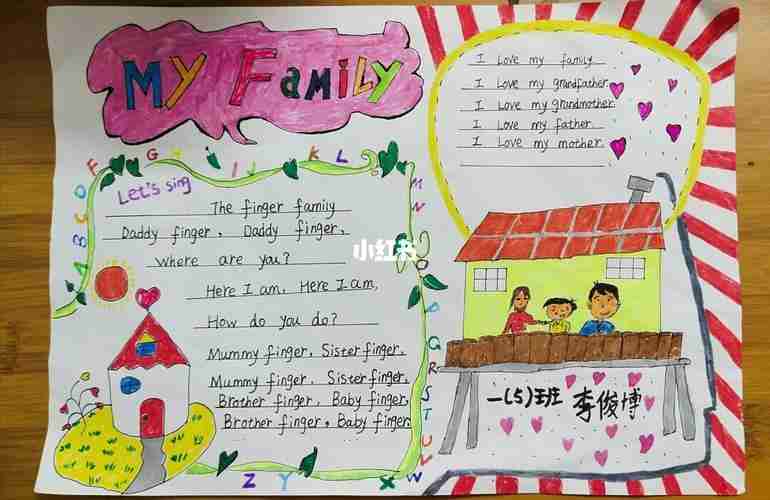 My Family
Let's sing
The finger family
Daddy finger, Daddy finger,
Where are you?
Here I am, Here I am,
How do you do?
Mummy finger, Sister finger,
Mummy finger, Sister finger,
Brother finger, Baby finger,
Brother finger, Baby finger
I Love my family
I Love my grandfather
I Love my grandmother
I Love my father
I Love my mother
一(5)班 李俊博
小红书
A B C D F G I J K L M N O P Q R S T U V W X Y Z